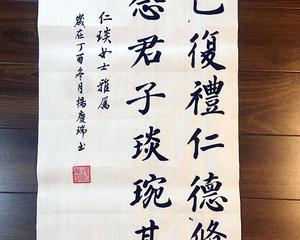 己復禮仁德修
君子琰琬其
仁琰女士雅属
歲在丁酉冬月楊慶瑞书